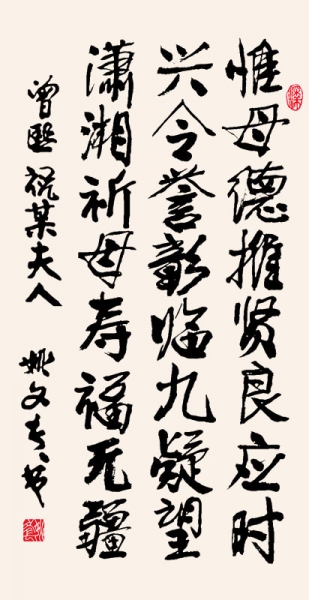 惟母德推贤良应时
兴令誉彰临九疑望
潇湘祈母寿福无疆
曾熙祝某夫人
姚文奎书